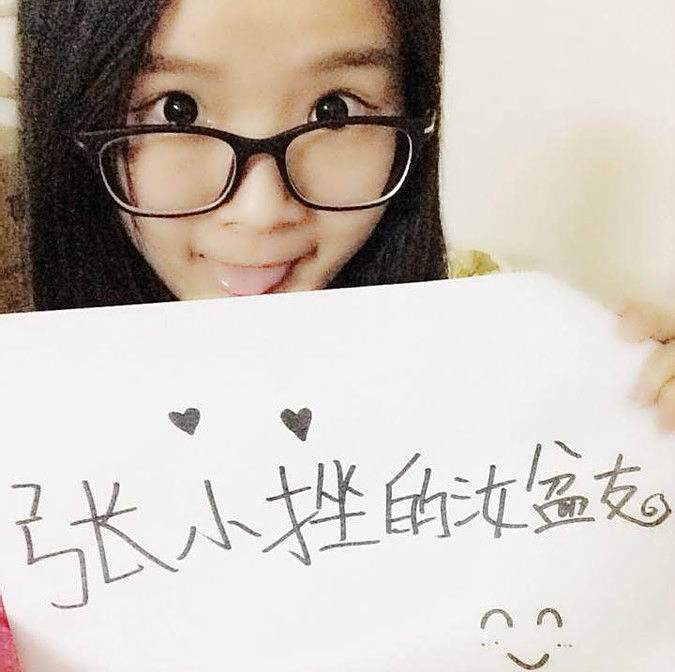 张小挫的汝盆友